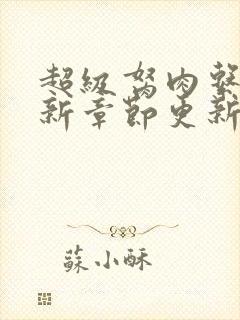 超級胬肉
新章節更新
蘇小酥